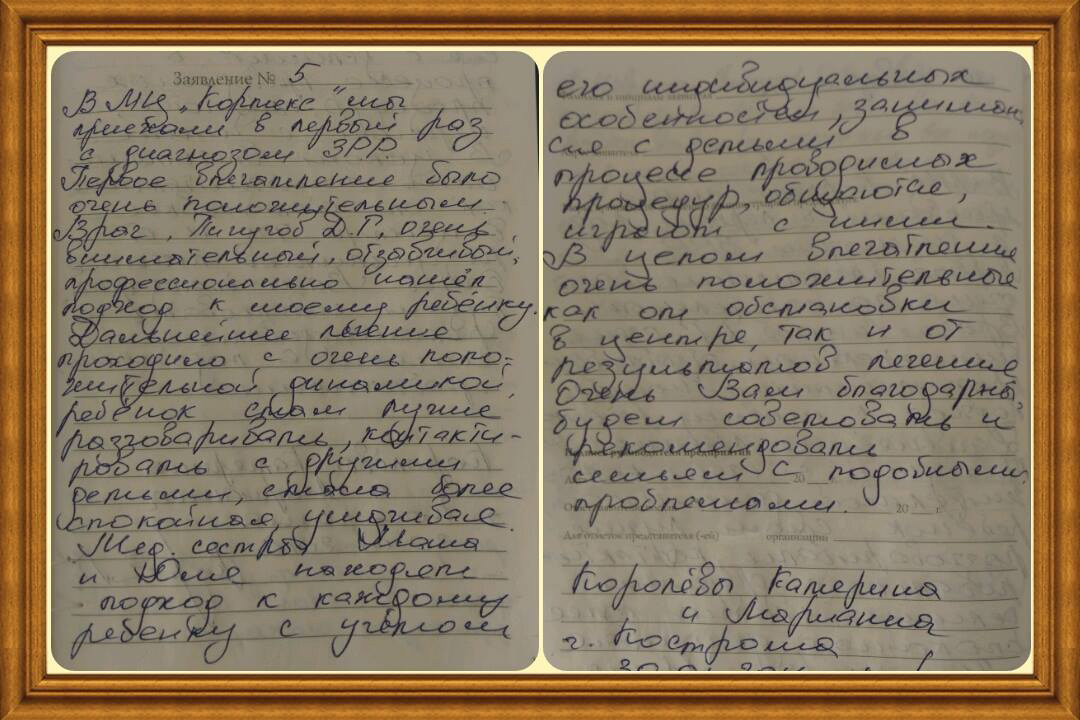 Заявление № 5
В МЦ "Кортекс" мы
приехали в первый раз
с диагнозом ЗРР
Первое впечатление было
очень положительным.
Врач, Пичугов Д.Г, очень
внимательный, отзывчивый,
профессионально нашёл
подход к моему ребёнку.
Дальнейшее лечение
проходило с очень поло-
жительной динамикой,
ребёнок стал лучше
разговаривать, контакти-
ровать с другими
детьми, стала более
спокойная, усидчивая.
Мед. сестры Маша
и Юля находят
подход к каждому
ребенку с учётом
его индивидуальных
особенностей, занимаю
ся с детьми в
процессе проводимых
процедур, общаются,
играют с ними.
В целом впечатление
очень положительные
как от обстановки
в центре, так и от
результатов лечения
Очень Вам благодарны,
будем советовать и
рекомендовать
семьям с подобными
20
проблемами.
20 г.
Для отметок представителя (-ей) организаций
Королёвы Катерина
и Марианна
г. Кострома